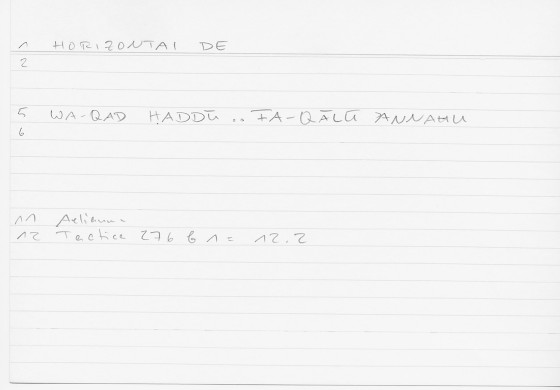 1 HORIZONTAI DE
2
5 WA-QAD ḤADDŪ .. FA-QĀLŪ ANNAHU
6
11 Aelianus
12 Tactica 276 b 1 = 12.2